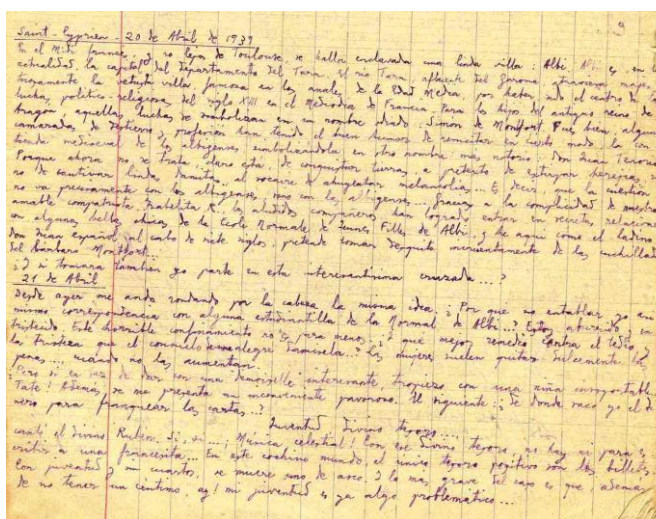 9
Saint-Cyprien - 20 de Abril de 1939
En el Midi francés, y no lejos de Toulouse, se halla enclavada una linda villa: Albi. Albi es, en la
actualidad, la capital del Departamento del Tarn. El río Tarn, afluente del Garona, atraviesa majes-
tuosamente la vetusta villa, famosa en los anales de la Edad Media, por haber sido el centro de las
luchas político-religiosas del siglo XIII en el Mediodía de Francia. Para los hijos del antiguo reino de
Aragón aquellas luchas se simbolizan en un nombre odiado: Simón de Montfort. Pues bien, algunos
camaradas de destierro y profesión han tenido el buen humor de resucitar en cierto modo la con-
tienda medioeval de los albigenses, simbolizándola en otro nombre más notorio: Don Juan Tenorio.
Porque ahora no se trata, claro está, de conquistar tierras, a pretexto de extirpar herejías, si-
no de cautivar lindas damitas, al socaire de ahuyentar melancolías... Es decir, que la cuestión
no va precisamente con los albigenses, sino con las albigenses... Gracias a la complicidad de nuestra
amable compatriota, Isabelita R., los aludidos compañeros han logrado entrar en secretas relaciones
con algunas bellas chicas de la École Normale de Jeunes Filles de Albi. Y he aquí como el ladino
Don Juan español, al cabo de siete siglos, pretende tomar desquite incruentamente de las cuchilladas
del bárbaro Montfort...
¿Y si tomara también yo parte en esta interesantísima cruzada...?
21 de Abril
Desde ayer me anda rondando por la cabeza la misma idea: ¿Por qué no entablar yo así
mismo correspondencia con alguna estudiantilla de la Normal de Albi...? Estoy aburrido y en-
tristecido. Este horrible confinamiento no es para menos. ¿Y qué mejor remedio contra el tedio y
la tristeza que el consuelo de una alegre damisela...? Las mujeres suelen quitar dulcemente las
penas... cuando no las aumentan.
¿Pero si en vez de dar con una demoiselle interesante, tropiezo con una niña insoportable?
¡Tate! Además, se me presenta un inconveniente pavoroso. El siguiente: ¿de donde saco yo el di-
nero para franquear las cartas...?
Juventud divino tesoro...
cantó el divino Rubén. Sí, sí...; ¡Música celestial! Con ese divino tesoro, no hay ni para es-
cribir a una francesita... En este cochino mundo, el único tesoro positivo son los billetes.
Con juventud y sin cuartos, se muere uno de asco. Y lo más grave del caso es que, además
de no tener un céntimo, ¡ay! mi juventud es ya algo problemático...